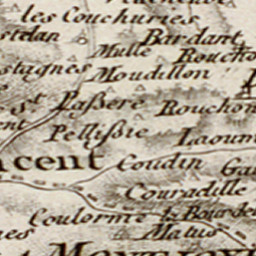 les Couchuries
stelan
Bardart
Mulle
Roucho
stagnes
Moudillon
st Passere
Rouchon
Pellissie
Laoum
cent
Coudin
Gau
Couradille
Coulorme
la Bourdet
Matus